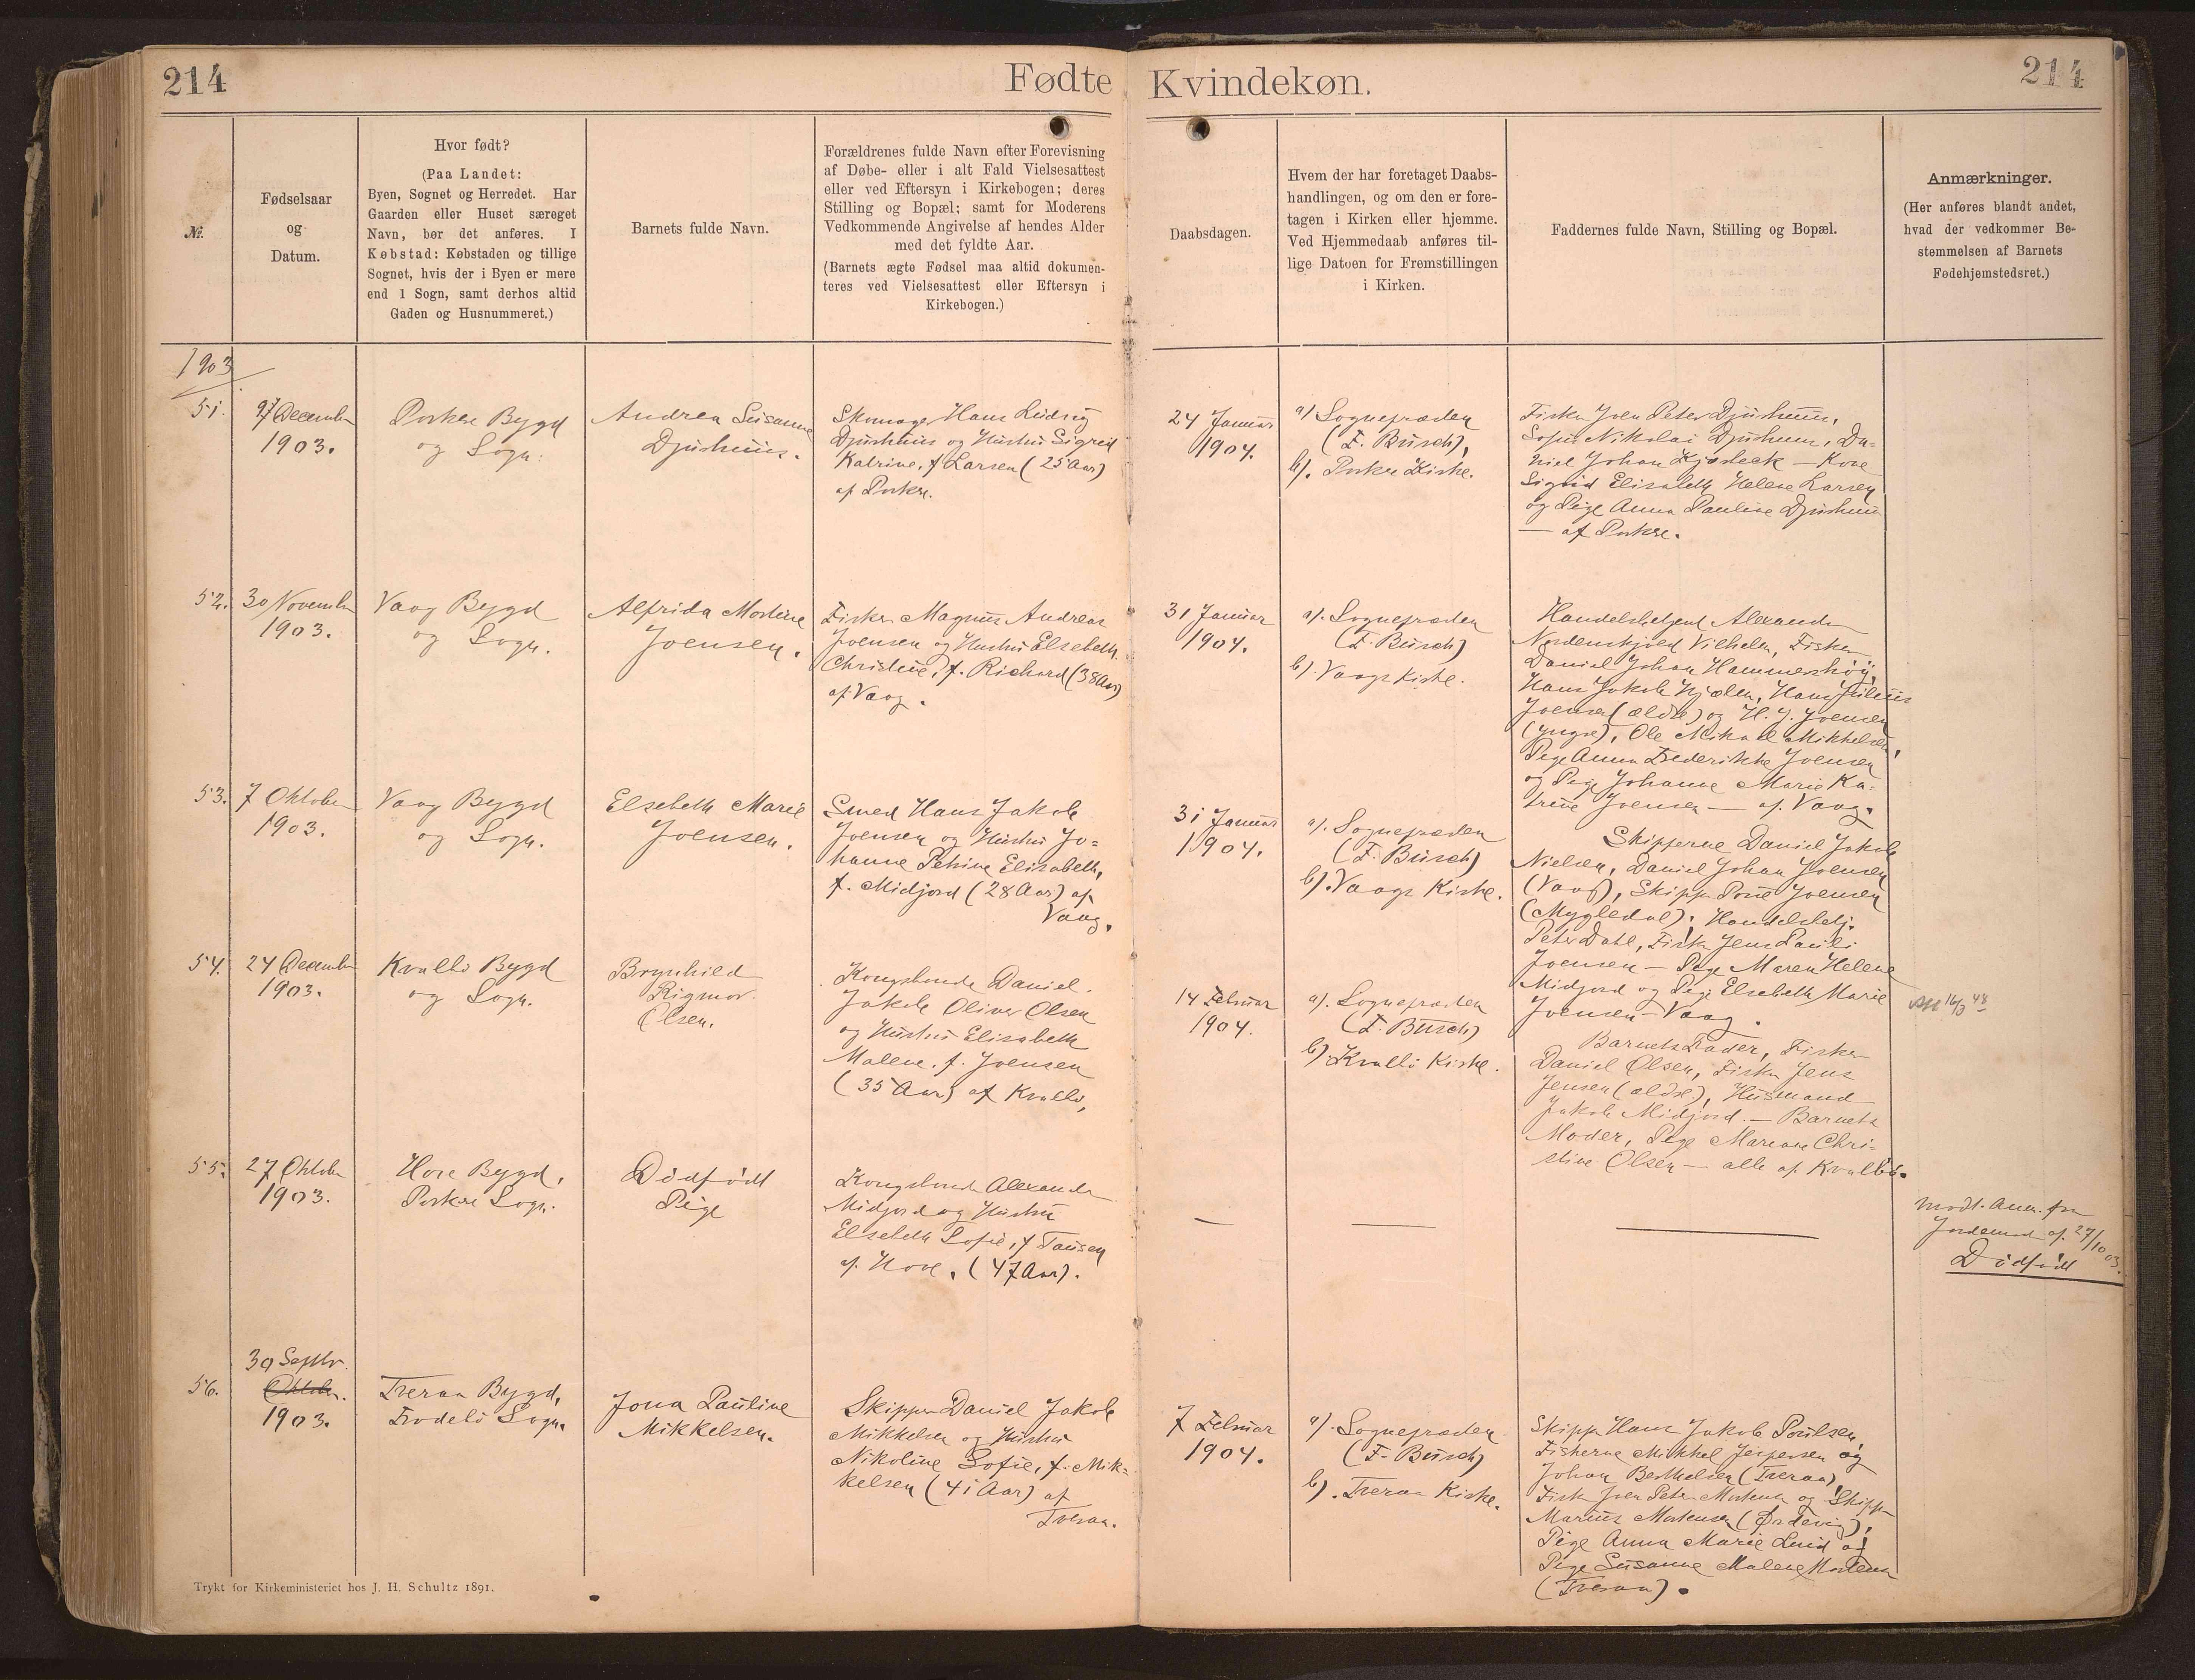 214
Fødte
Kvindekøn.
214
№.
Fødselsaar
og
Datum.
Hvor født?
(Paa Landet:
Byen, Sognet og Herredet. Har
Gaarden eller Huset særeget
Navn, bør det anføres. I
Købstad: Købstaden og tillige
Sognet, hvis der i Byen er mere
end 1 Sogn, samt derhos altid
Gaden og Husnummeret.)
Barnets fulde Navn.
Forældrenes fulde Navn efter Forevisning
af Døbe- eller i alt Fald Vielsesattest
eller ved Eftersyn i Kirkebogen; deres
Stilling og Bopæl; samt for Moderens
Vedkommende Angivelse af hendes Alder
med det fyldte Aar.
(Barnets ægte Fødsel maa altid dokumen-
teres ved Vielsesattest eller Eftersyn i
Kirkebogen.)
Daabsdagen.
Hvem der har foretaget Daabs-
handlingen, og om den er fore-
tagen i Kirken eller hjemme.
Ved Hjemmedaab anføres til-
lige Datoen for Fremstillingen
i Kirken.
Faddernes fulde Navn, Stilling og Bopæl.
Anmærkninger.
(Her anføres blandt andet,
hvad der vedkommer Be-
stemmelsen af Barnets
Fødehjemstedsret.)
1903
51.
December
1903.
Porkere Bygd
og Sogn.
Andrea Susanne
Djurhuus.
Skomager Hans Ludvig
Djurhuus og Hustru Sigrid
Katrine, f. Larsen (25 Aar)
af Porkere.
24 Januar
1904.
a) Sognepræsten
(F. Busch),
b). Porkere Kirke.
Fisker Joen Peter Djurhuus,
Sofus Nikolai Djurhuus, Da-
niel Johan Kjærbæk — Kone
Sigrid Elisabeth Helene Larsen
og Pige Anna Pauline Djurhuus
— af Porkere.
52.
30 November
1903.
Vaag Bygd
og Sogn.
Alfrida Mortine
Joensen.
Fisker Magnus Andreas
Joensen og Hustru Elsebeth
Christine, f. Richard (38 Aar)
af Vaag.
31 Januar
1904.
a). Sognepræsten
(F. Busch)
b). Vaags Kirke.
Handelsbetjent Alexander
Nordenskjold Vilhelm, Fisker
Daniel Johan Hammershøy,
Hans Jakob Hjælm, Hans Julius
Joensen (ældre) og H. J. Joensen
(yngre), Ole Mikael Mikkelsen,
Pige Anna Frederikke Joensen
og Pige Johanne Marie Ka-
trine Joensen — af Vaag.
53.
7 Oktober
1903.
Vaag Bygd
og Sogn.
Elsebeth Marie
Joensen.
Smed Hans Jakob
Joensen og Hustru Jo-
hanne Petrine Elisabeth,
f. Midjord (28 Aar) af
Vaag.
31 Januar
1904.
a). Sognepræsten
(F. Busch)
b). Vaags Kirke.
Skipperne Daniel Jakob
Nielsen, Daniel Johan Joensen
(Vaag), Skipper Poul Joensen
(Mygledal), Handelsbetj.
Peter Dahl, Fisker Jens Pauli
Joensen — Pige Maren Helene
Midjord og Pige Elsebeth Marie
Joensen — Vaag.
54.
24 December
1903.
Kvalbø Bygd
og Sogn.
Brynhild
Rigmor
Olsen.
Kongsbonde Daniel
Jakob Oliver Olsen
og Hustru Elisabeth
Malene, f. Joensen
(35 Aar) af Kvalbø,
14 Februar
1904.
a). Sognepræsten
(F. Busch)
b) Kvalbø Kirke.
Barnets Fader, Fisker
Daniel Olsen, Fisker Jens
Jensen (ældre), Husmand
Jakob Midjord. — Barnets
Moder, Pige Mariane Chri-
stine Olsen — alle af Kvalbø.
16/3 48
55.
27 Oktober
1903.
Hove Bygd,
Porkere Sogn.
Dødfødt
Pige
Kongsbonde Alexander
Midjord og Hustru
Elsebeth Sofie, f. Tausen
af Hove. (47 Aar).
Modt. Anm. fra
Jordemod. af 27/10 03.
Dødfødt
56.
30 Septbr.
Oktober.
1903.
Tveraa Bygd,
Frodebø Sogn.
Jona Pauline
Mikkelsen.
Skipper Daniel Jakob
Mikkelsen og Hustru
Nikoline Sofie, f. Mik-
kelsen (41 Aar) af
Tveraa.
7 Februar
1904.
a). Sognepræsten
(F. Busch)
b). Tveraa Kirke.
Skipper Hans Jakob Poulsen,
Fiskerne Mikkel Jespersen og
Johan Berthelsen (Tveraa)
Fisker Joen Peter Mortensen og Skipper
Marius Mortensen (Ørdevig),
Pige Anna Marie Lund og
Pige Susanne Malene Mortensen
(Tveraa).
Trykt for Kirkeministeriet hos J. H. Schultz 1891.